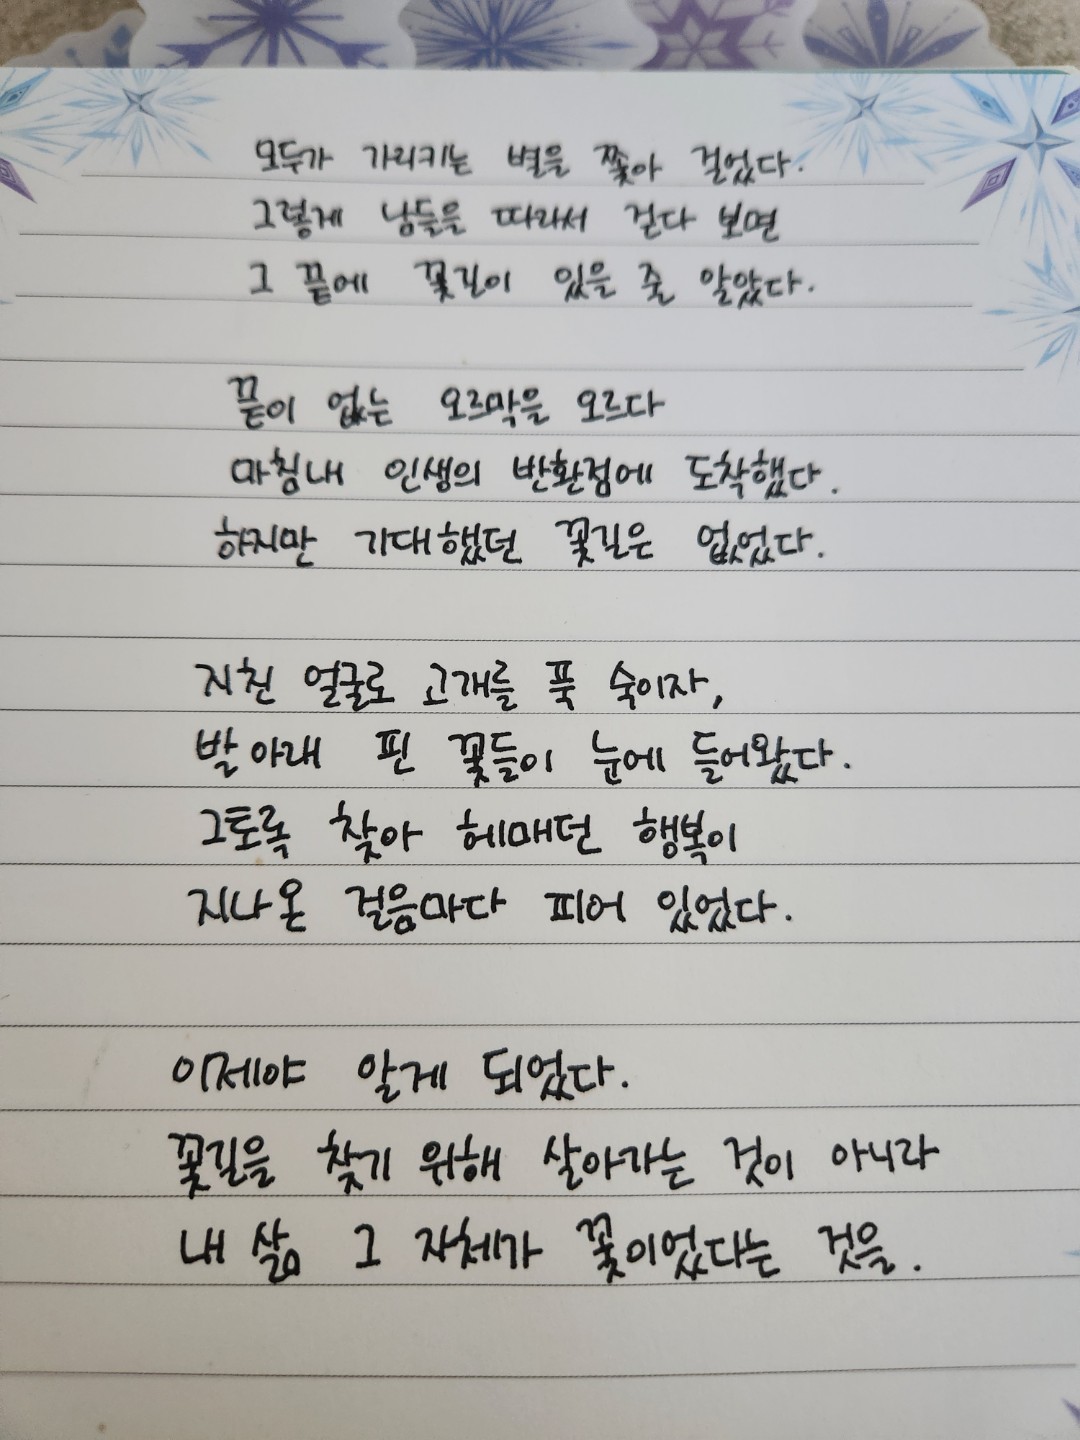 모두가 가리키는 별을 쫓아 걸었다.
그렇게 남들을 따라서 걷다 보면
그 끝에 꽃길이 있을 줄 알았다.
끝이 없는 오르막을 오르다
마침내 인생의 반환점에 도착했다.
하지만 기대했던 꽃길은 없었다.
지친 얼굴로 고개를 푹 숙이자,
발 아래 핀 꽃들이 눈에 들어왔다.
그토록 찾아 헤매던 행복이
지나온 걸음마다 피어 있었다.
이제야 알게 되었다.
꽃길을 찾기 위해 살아가는 것이 아니라
내 삶 그 자체가 꽃이었다는 것을.